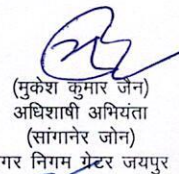 (मुकेश कुमार जैन)
अधिशाषी अभियंता
(सांगानेर जोन)
गर निगम ग्रेटर जयपुर